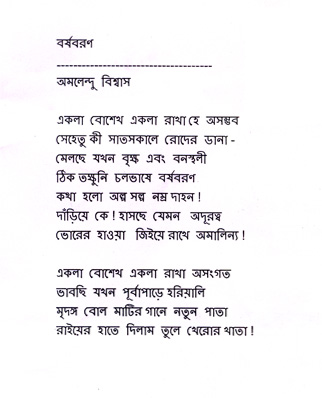 বর্ষবরণ
-------------------------------------
অমলেন্দু বিশ্বাস
একলা বোশেখ একলা রাখা হে অসম্ভব
সেহেতু কী সাতসকালে রোদের ডানা -
মেলছে যখন বৃক্ষ এবং বনস্থলী
ঠিক তক্ষুনি চলভাষে বর্ষবরণ
কথা হলো অল্প সল্প নম্র দাহন !
দাঁড়িয়ে কে ! হাসছে যেমন অদূরত্ব
ভোরের হাওয়া জিইয়ে রাখে অমালিন্য !
একলা বোশেখ একলা রাখা অসংগত
ভাবছি যখন পূর্বাপাড়ে হরিয়ালি
মৃদঙ্গ বোল মাটির গানে নতুন পাতা
রাইয়ের হাতে দিলাম তুলে খেরোর খাতা !